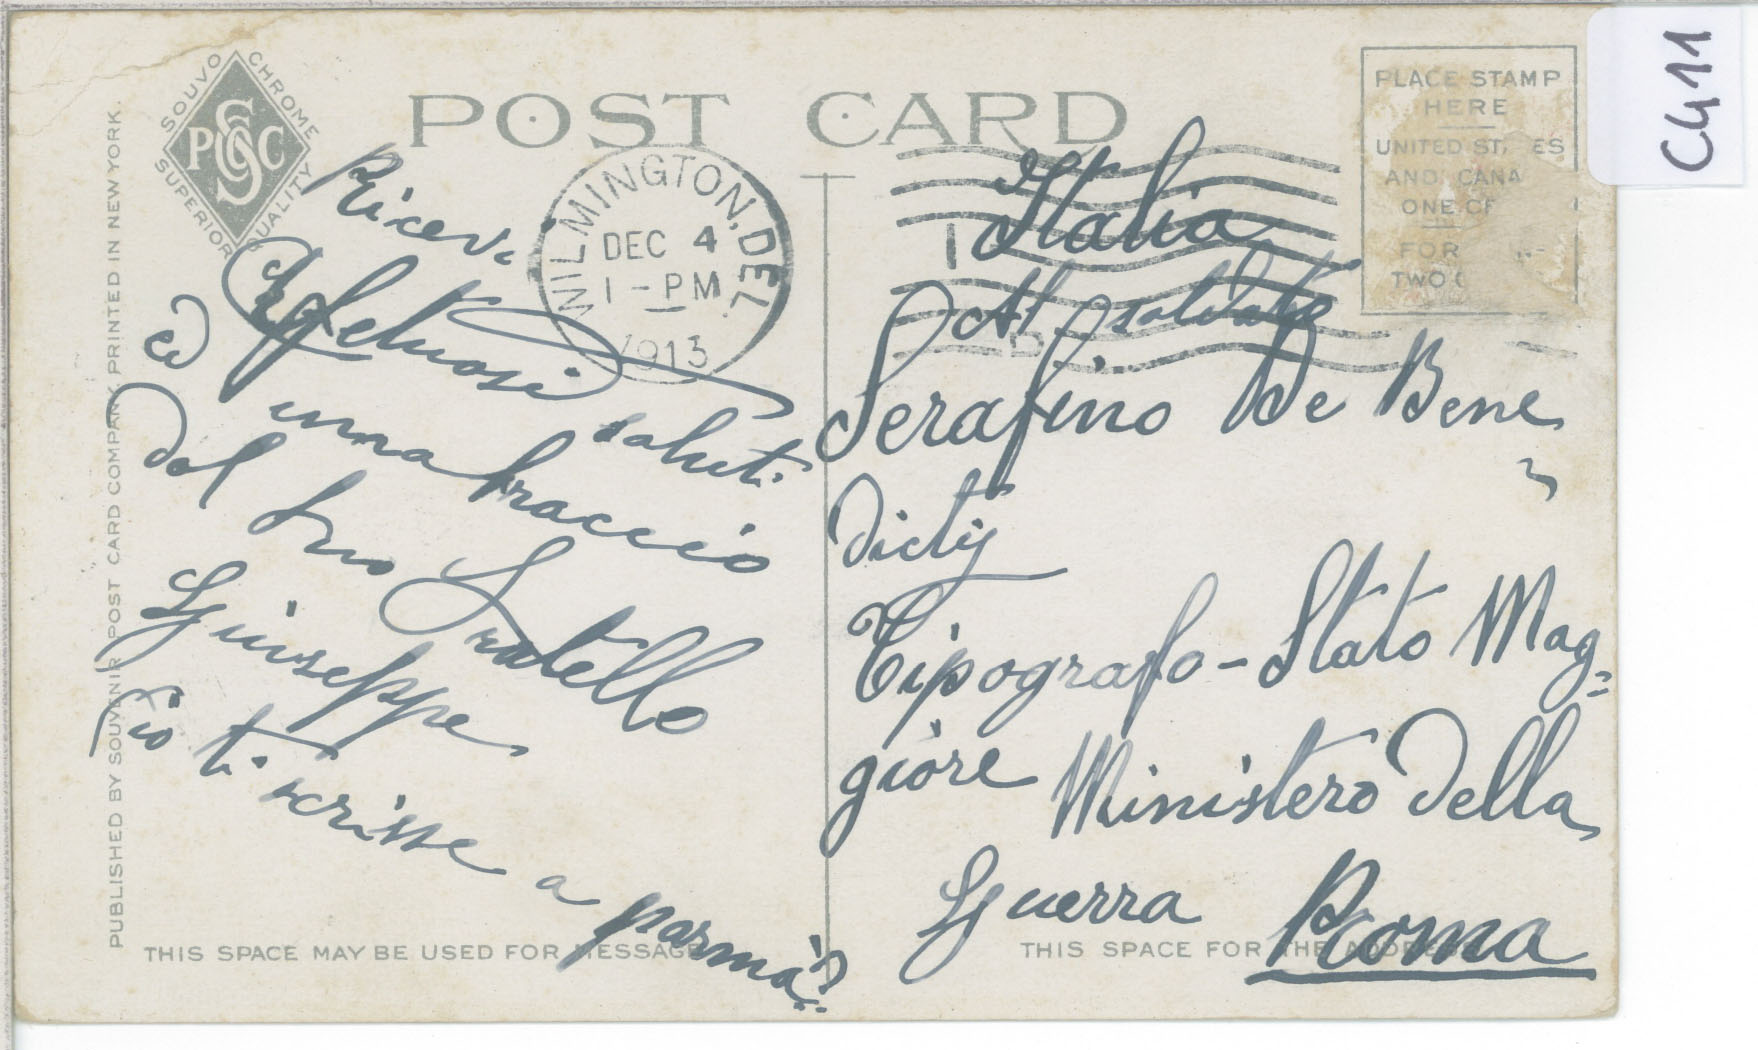 C411
POST CARD
SOUVO CHROME
PSC Co
SUPERIOR QUALITY
PUBLISHED BY SOUVENIR POST CARD COMPANY, PRINTED IN NEW YORK.
WILMINGTON, DEL.
DEC 4
1 - PM
1913
PLACE STAMP
HERE
UNITED ST ES
AND CANA
ONE CE
FOR
TWO C
Ricevi
Affetuosi saluti
ed unna braccio
dal tuo Fratello
Giuseppe
Io ti scrisse a parma?
THIS SPACE MAY BE USED FOR MESSAGE
Italia
Al soldato
Serafino De Bene
dictis
Tipografo - Stato Mag=
giore Ministero della
Guerra Roma
THIS SPACE FOR THE ADDRESS